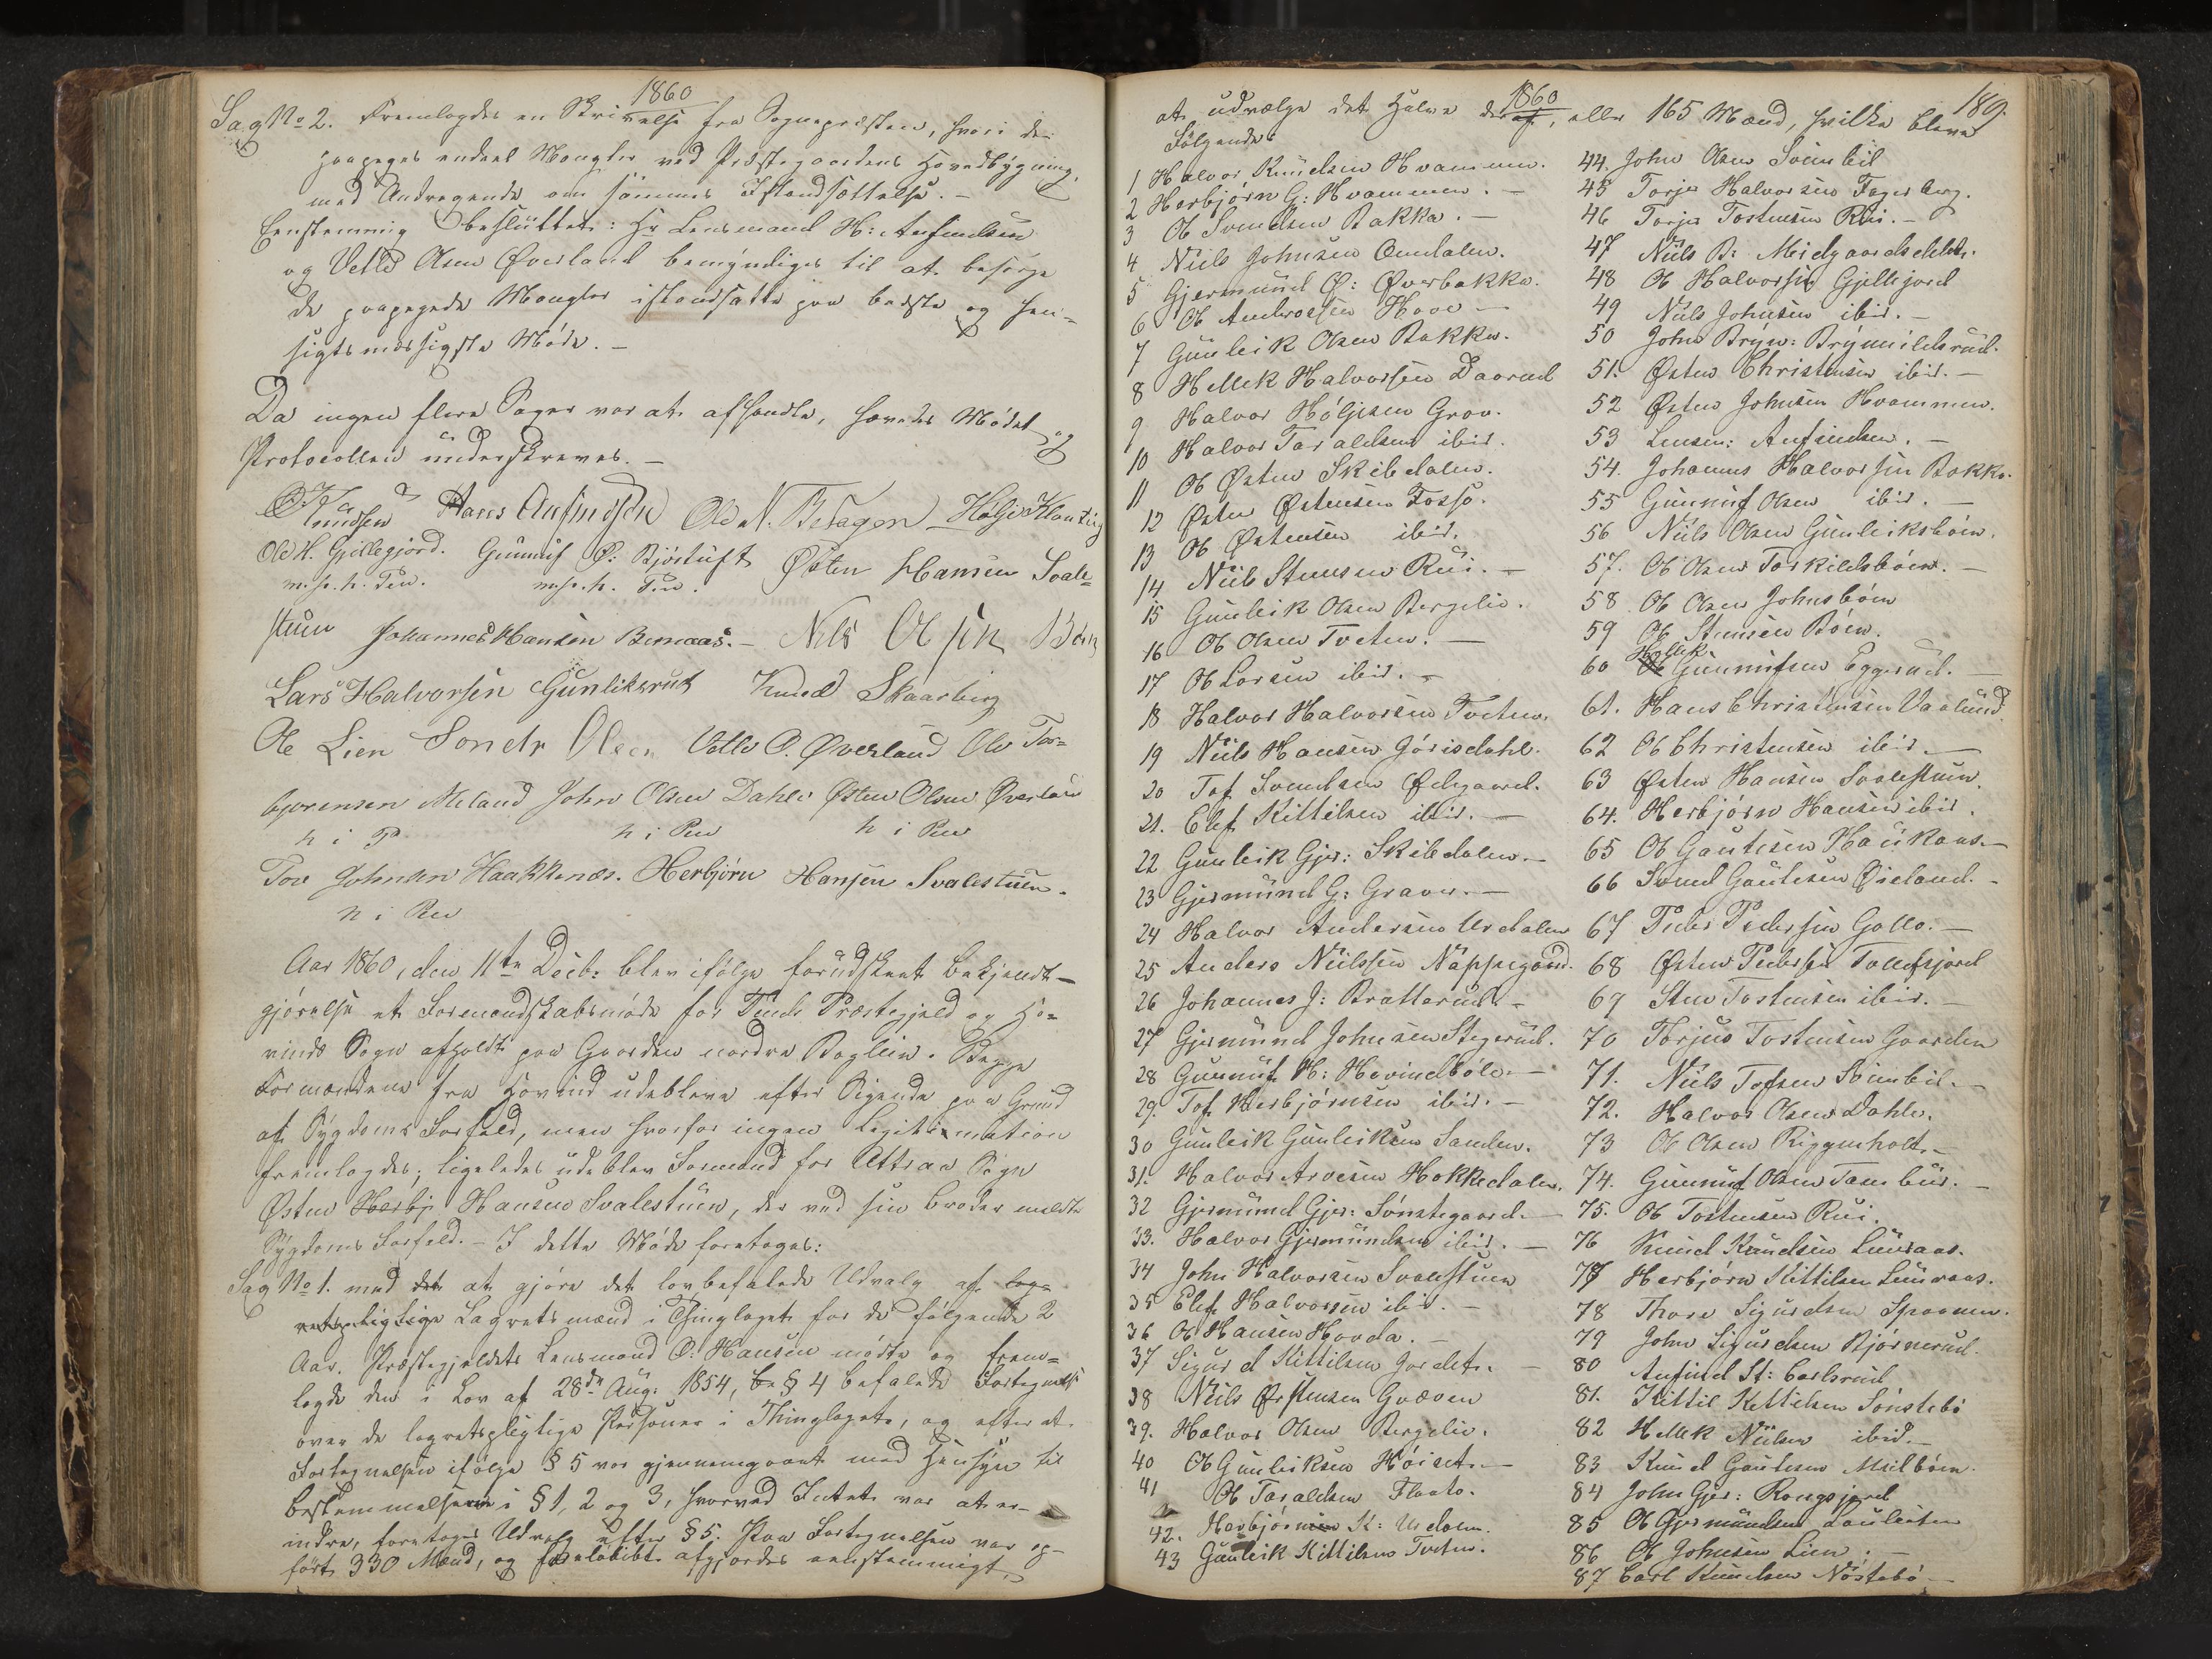 1860
Sag No 2. Fremlagdes en Skrivelse fra Sognepræsten, hvori de
paapeges endeel Mangler ved Præstegaardens Hovedbygning,
med Andragende om sammes Istandsættelse. —
Eenstemmig besluttet: Hr Lensmand H: Anfindsen
og Vetle Olsen Øverland bemyndiges til at besørge
de paapegede Mangler istandsatte paa bedste og hen=
sigtsmæssigste Måde. —
Da ingen flere Sager var at afhandle, hævedes Mødet og
Protocollen underskreves. —
Knudsen Hans Anfindsen Ole N. Bersagen Hølje
Ole H. Gjellegjord. Gunnuf O: Bjørtuft Østen Hansen Svale=
m. p. h. Pen. m. p. h. Pen.
stuen Johannes Hansen Bernaas. — Nels Olsen Bøen
Lars Halvorsen Gunliksrud Knud Skaarberg
Ole Lien Sondr Olsen Vetle O. Øverland Ole Tor=
bjørensen Meland John Olsen Dahle Østen Olsen Øverland
h i P h i Pen h i Pen
Tov Johnsen Haakkenæs. Herbjørn Hansen Svalestuen.
h i Pen
Aar 1860, den 11te Decb: blev ifølge forudskeet Bekjendt—
gjørelse et Formandskabsmøde for Tinds Præstegjeld og Ho=
vinds Sogn afholdt paa Gaarden nordre Boglein. Begge
Formændene fra Hovind udebleve efter Sigende paa Grund
af Sygdoms Forfald, men hvorfor ingen Legitimation
fremlagdes; ligeledes udeblev Formand for Attraa Sogn
Østen Herbj Hansen Svalestuen, der ved sin Broder meldte
Sygdoms Forfald. — I dette Møde foretoges:
Sag No 1. med det at gjøre det lovbefalede Udvalg af lag=
retspligtige Lagretsmænd i Thinglaget for de følgende 2
Aar. Præstegjeldets Lensmand O: Hansen mødte og frem=
lagde den i Lov af 28de Aug: 1854, § 4 befalede Fortegnelse
over de lagretspligtige Personer i Thinglaget, og efter at
Fortegnelsen ifølge § 5 var gjennemgaaet med Hensyn til
Bestemmelserne i § 1, 2 og 3, hvorved Intet var at er—
indre, foretoges Udvalg efter § 5. Paa Fortegnelsen var op—
ført 330 Mænd, og afgjordes eenstemmigt
1860
189.
at udvælge det Halve deraf, eller 165 Mænd, hvilke bleve
Følgende:
1 Halvor Knudsen Hvammen.
2 Herbjørn G: Hvammen. —
3 Ole Svendsen Bakka. —
4 Niels Johnsen Bundalen.
5 Gjermund O: Øverbakka.
6 Ole Ambrossen Hove —
7 Gunleik Olsen Bakka.
8 Hellek Halvorsen Daarud
9 Halvor Høljesen Grov.
10 Halvor Taraldsen ibid.
11 Ole Østen Skibdalen.
12 Østen Østensen Fosso.
13 Ole Østensen ibid.
14 Niels Stensen Rui. —
15 Gunleik Olsen Bergelie.
16 Ole Olsen Tveten. —
17 Ole Larsen ibid. —
18 Halvor Halvorsen Tveten.
19 Niels Hansen Gørisdahl.
20 Tof Svendsen Ødegaard.
21. Elef Kittilsen ibid. —
22 Gunleik Gjer: Skibdalen. —
23 Gjermund G: Graver. —
24 Halvor Andersen Urdalen
25 Anders Nielssen Nappegaard.
26 Johannes J: Bratterud. —
27 Gjermund Johnsen Stegerud.
28 Gunnuf H: Hovindbøle. —
29. Tof Herbjørnsen ibid. —
30 Gunleik Gunleiksen Samlen.
31. Halvor Arvesen Hokkedalen.
32 Gjermund Gjer: Sønstegaard. —
33. Halvor Gjermundsen ibid. —
34 John Halvorsen Svalestuen
35 Elef Halvorsen ibid. —
36 Ole Hansen Hovda. —
37 Sigurd Kittilsen Jordet. —
38 Niels Østensen Gvæven
39. Halvor Olsen Bergelie.
40 Ole Gunleiksen Høiset. —
41 Ole Taraldsen Flaato.
42. Herbjørn K: Urdalen.
43 Gunleik Kittilsen Tveten.
44. John Olsen Sembil
45 Torjer Halvorsen Fagerberg.
46 Torjer Tostensen Rui. —
47 Niels B: Meidgaardsskletten.
48 Ole Halvorsen Gjellejord
49 Niels Johnsen ibid. —
50 John Bryn: Brynnildsrud.
51. Østen Christensen ibid. —
52 Østen Johnsen Hvammen.
53 Lensm: Anfindsen. —
54. Johannes Halvorsen Bakka.
55 Gunnuf Olsen ibid. —
56 Niels Olsen Gunleiksbøen.
57. Ole Olsen Torkildsbøen. —
58 Ole Olsen Johnsbøen
59 Ole Stensen Bøen.
60 Hellek Gunnufsen Eggerud. —
61. Hans Christensen Vaalund.
62 Ole Christensen ibid. —
63 Østen Hansen Svalestuen.
64. Herbjørn Hansen ibid.
65 Ole Gautesen Haukaas. —
66 Svend Gautesen Øieland. —
67 Peder Pedersen Gollo. —
68 Østen Pedersen Tollefsjord
69 Sten Tostensen ibid. —
70 Torjus Tostensen Gaarden
71. Niels Tofsen Sembil. —
72. Halvor Olsen Dahle.
73 Ole Olsen Riggenholt. —
74. Gunnuf Olsen Tambur. —
75. Ole Tostensen Rui.
76 Knud Knudsen Luraas.
77 Herbjørn Kittilsen Luraas.
78 Thore Sigurdsen Spaanen.
79 John Sigurdsen Bjørnerud.
80 Anfind St: Carlsrud
81. Kittil Kittilsen Sønstebø
82 Hellek Nielsen ibid. —
83 Knud Gautesen Meelbøen.
84 John Gjer: Rongsjord
85 Ole Gjermundsen Lauleiten
86 Ole Johnsen Lien. —
87 Carl Knudsen Nøstebø —